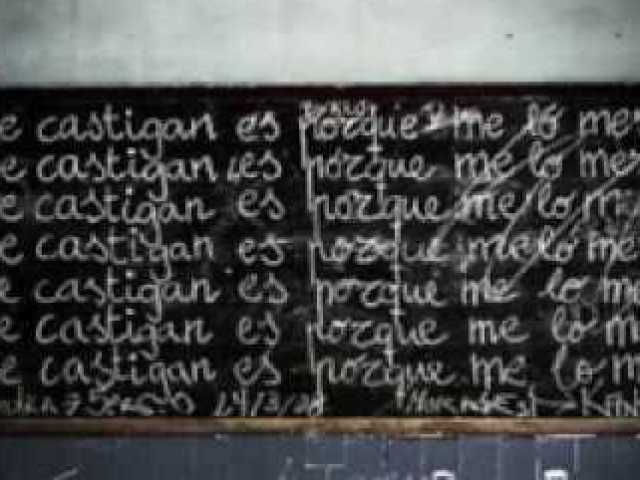 e castigan es porque me lo mer
e castigan es porque me lo mer
e castigan es porque me lo m
e castigan es porque me lo me
e castigan es porque me lo m
e castigan es porque me lo m
e castigan es porque me lo m